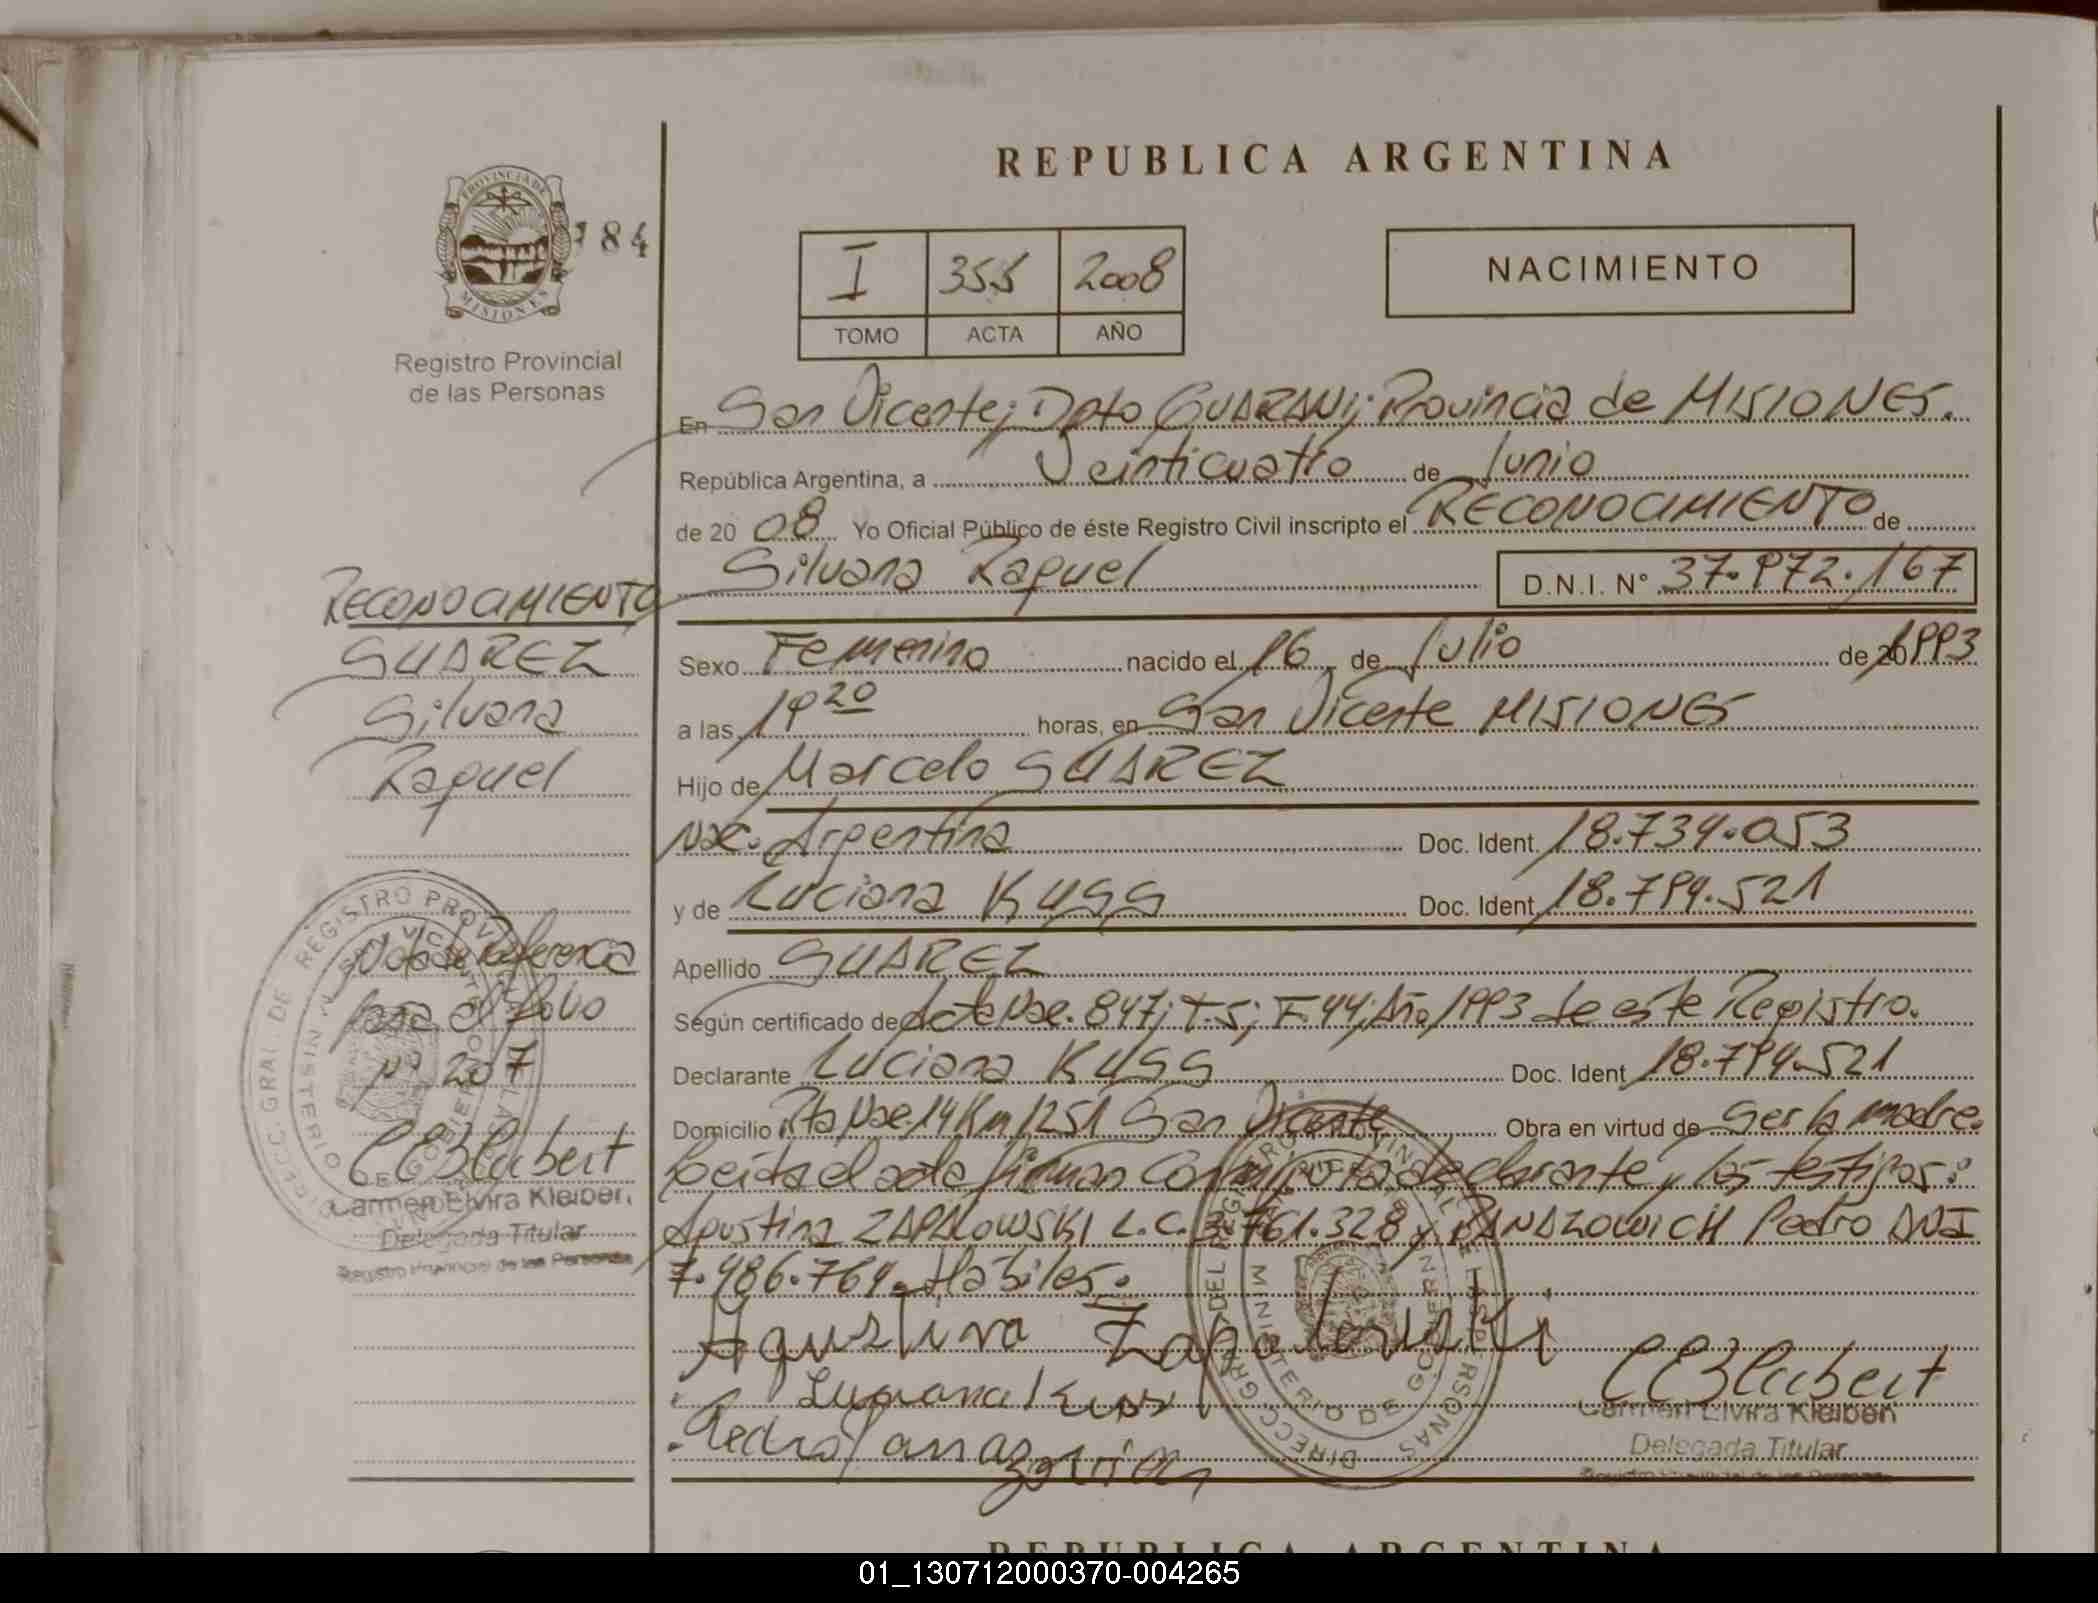 REPUBLICA ARGENTINA
PROVINCIA DE
MISIONES
184
Registro Provincial
de las Personas
I 355 2008
TOMO ACTA AÑO
NACIMIENTO
En San Vicente; Dpto GUARANI; Provincia de MISIONES.
República Argentina, a Veinticuatro de Junio
de 20 08 Yo Oficial Público de éste Registro Civil inscripto el RECONOCIMIENTO de
Silvana Raquel D.N.I. N° 37.972.167
RECONOCIMIENTO
SUAREZ
Silvana
Raquel
Sexo Femenino nacido el 16 de Julio de 20 1993
a las 19 20 horas, en San Vicente MISIONES
Hijo de Marcelo SUAREZ
Nac. Argentina Doc. Ident. 18.734.053
y de Luciana KUSS Doc. Ident. 18.794.521
Apellido SUAREZ
Según certificado de Acta Nac. 847; T-5; F-44; Año 1993 de este Registro.
Declarante Luciana KUSS Doc. Ident 18.794.521
Domicilio Rta Nac. 14 Km 1251 San Vicente Obra en virtud de ser la madre.
Leida el acta firman conmigo la declarante y los testigos:
Agustina ZAPALOWSKI L.C. 3.761.328 y PANAZOWICH Pedro DNI
7.486.764. Habiles.
Agustina Zapalouski
Luciana Kuss
Pedro
CEKleibert
Carmen Elvira Kleiber
Delegada Titular
Registro Provincial de las Personas
Nota de Referencia
para el folio
n° 207
CEKleibert
Carmen Elvira Kleiber
Delegada Titular
Registro Provincial de las Personas
REPUBLICA ARGENTINA
01_130712000370-004265